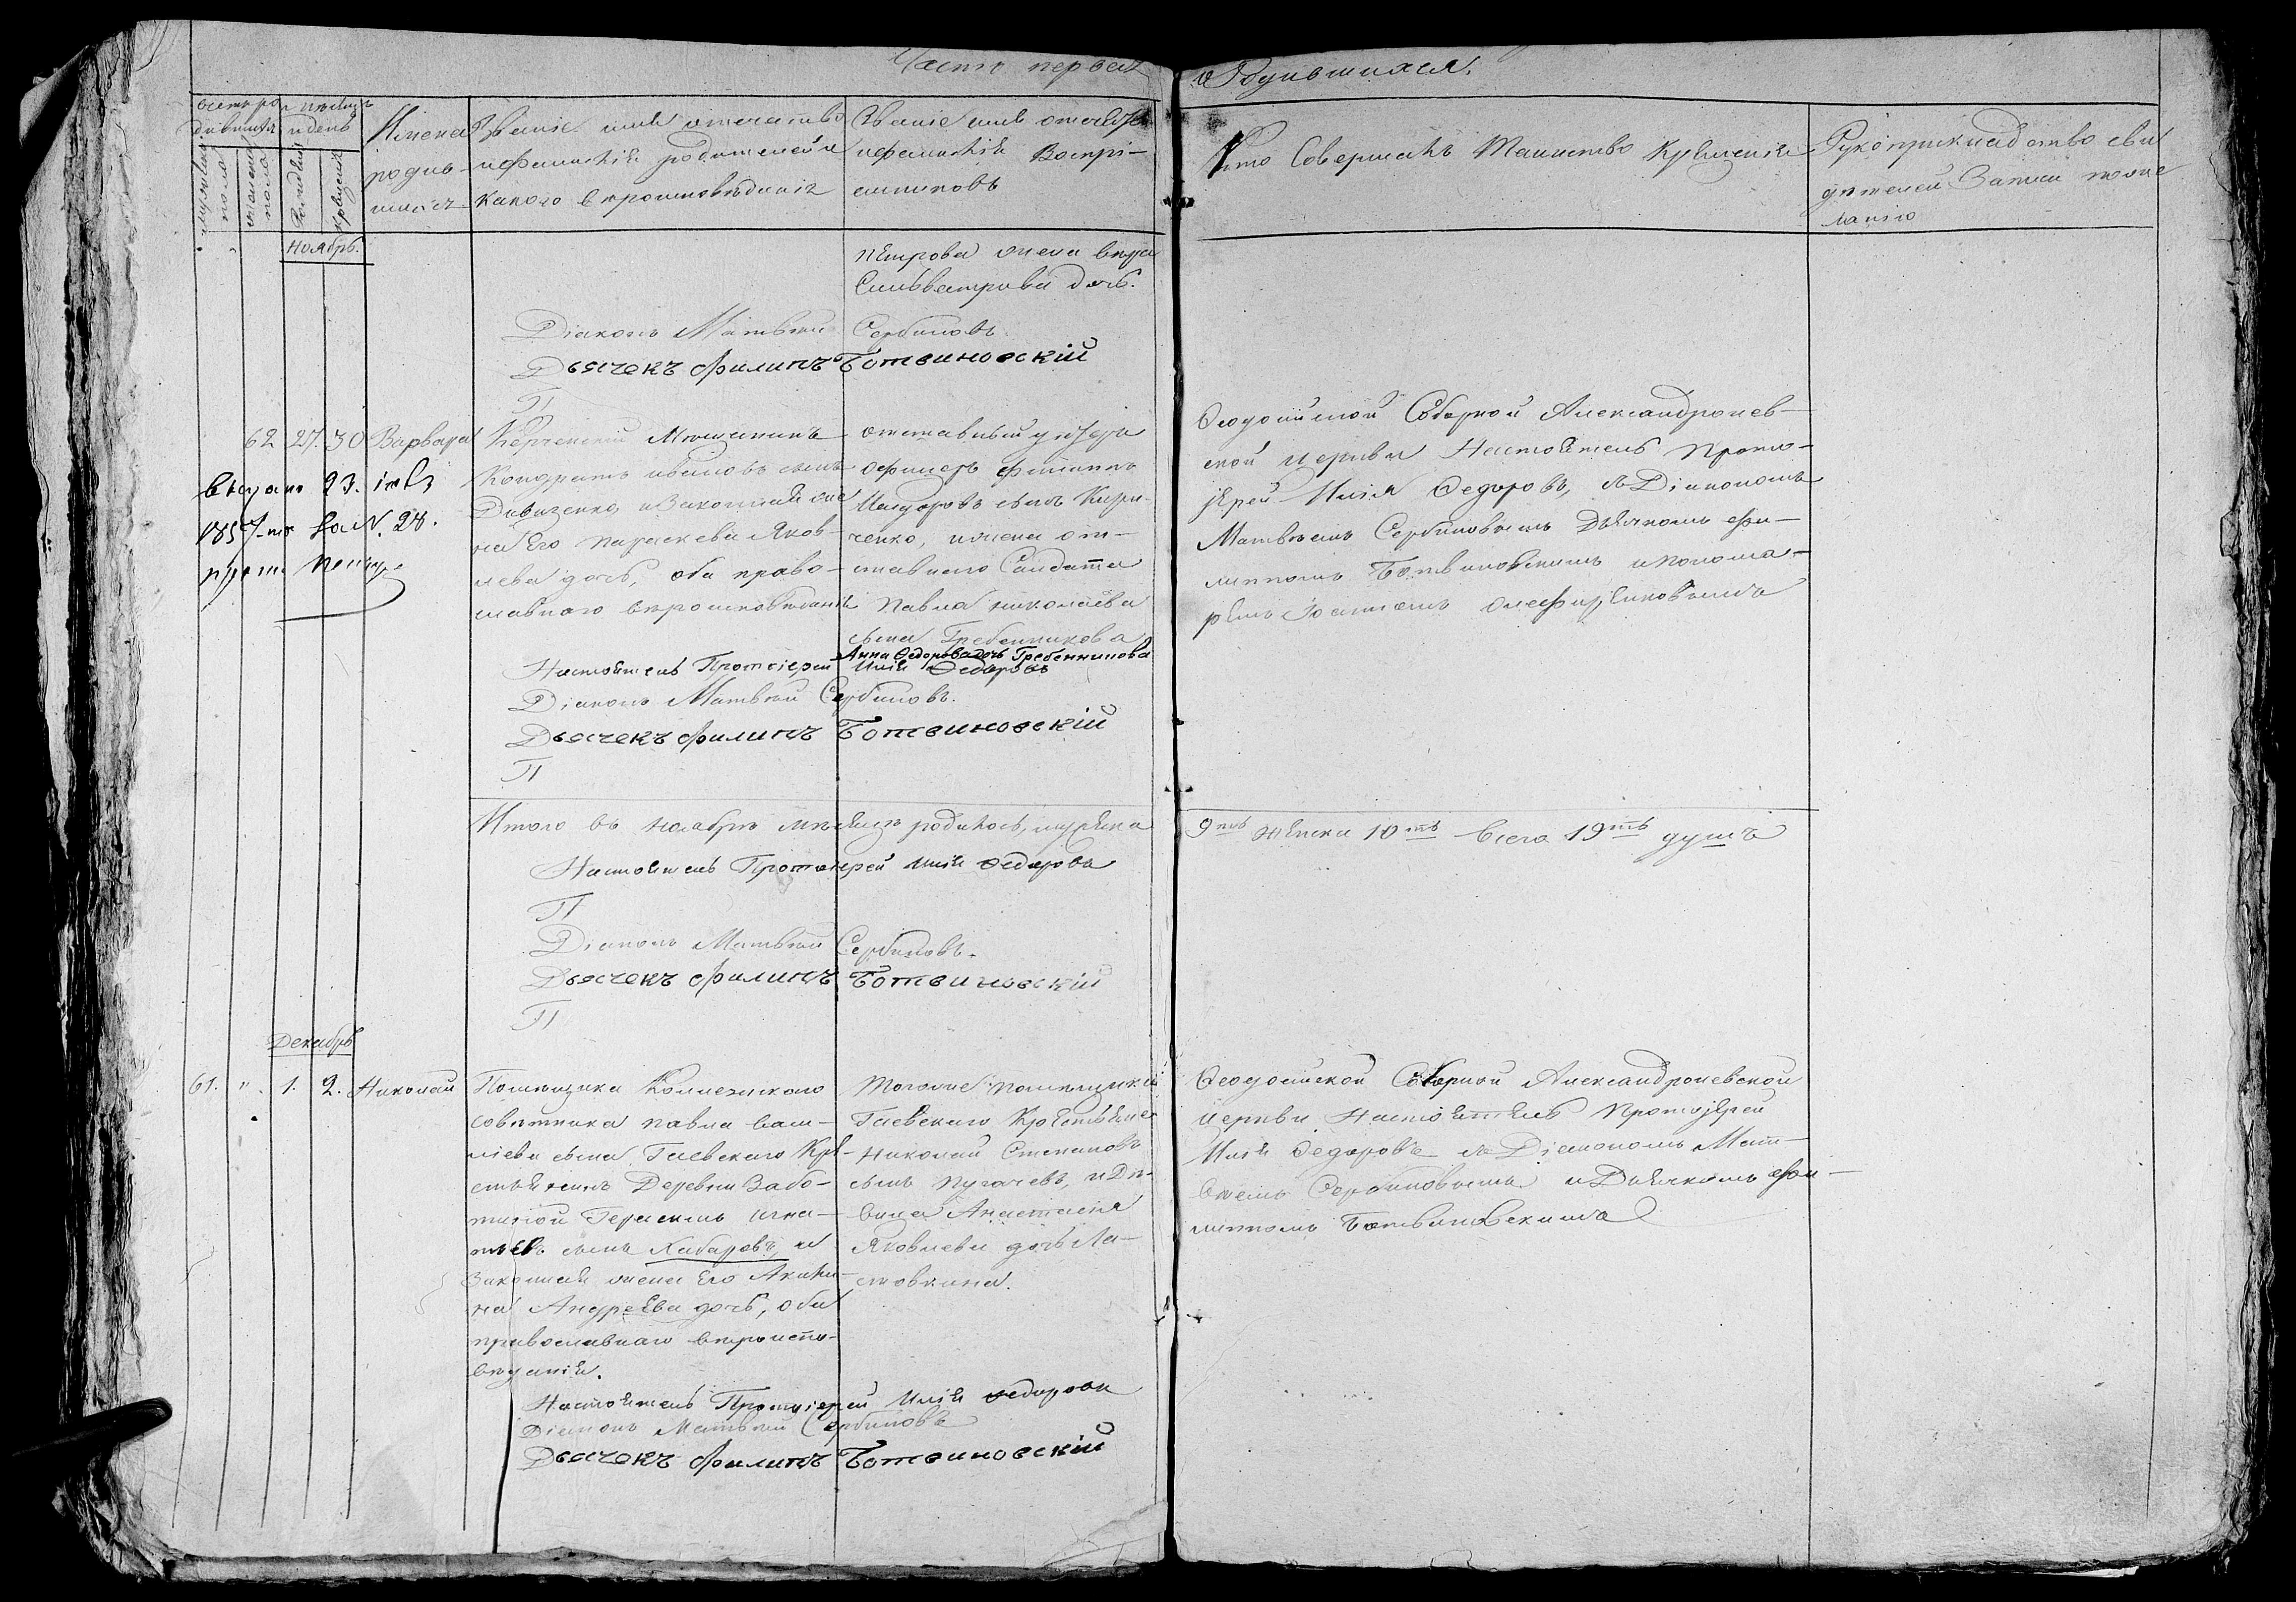 Часть первая
о Родившихся.
Счетъ ро-
дившихся
мужеска пола
женска пола
Мѣсяцъ
и день
Рожденія
Крещенія
Имена
родив-
шихся
Званіе имя отечество
и фамилія родителей и
какого вѣроисповѣданія
Званіе имя отечество
и фамилія Воспрі-
емниковъ
Кто Совершалъ Таинство Крещенія
Рукоприкладство сви
дѣтелей Записи по же
ланію
Ноябрь.
Петрова жена
Сильвестрова дочь.
Діаконъ Матвѣй Сербиновъ
Дьячекъ Филипъ Ботвиновскій
П
62
27. 30
Варвара
Выдано 23.
1857-го За N. 28.
Керченскій Мѣщанинъ
Кондратъ Ивановъ сынъ
и Законная же
на Его Параскева Яков-
лева дочь, оба право-
славнаго вѣроисповѣданія
отставный унтеръ
Офицеръ Филиппъ
сынъ Кири-
ченко, и жена от-
ставнаго Солдата
Павла Николаева
сына Гребенникова
Анна Ѳедорова дочь Гребенникова
Ѳеодосійской Соборной Александронев-
ской церкви Настоятель Прото-
іерей Илія Ѳедоровъ, съ Діакономъ
Матвѣемъ Сербиновымъ Дьячкомъ Фи-
липпомъ Ботвиновскимъ и понома-
ремъ
Настоятель Протоіерей Илія Ѳедоровъ
Діаконъ Матвѣй Сербиновъ.
Дьячекъ Филипъ Ботвиновскій
П
Итого въ Ноябрѣ мѣсяцѣ родилось, мужеска
9ть женска 10ть Всего 19ть душъ
Настоятель Протоіерей Илія Ѳедоровъ
П
Діаконъ Матвѣй Сербиновъ.
Дьячекъ Филипъ Ботвиновскій
П
Декабрь
61. " 1. 2. Николай
Помѣщика Коллежскаго
Совѣтника Павла Васи-
ліева сына Гаевскаго Кре-
стьянинъ Деревни
Герасимъ Игна-
тьевъ сынъ Хабаровъ, и
Законная жена Его Акили-
на Андреева дочь, оба
православнаго вѣроиспо-
вѣданія.
Того же помѣщика
Гаевскаго Крестьяне
Николай Степановъ
сынъ Пугачевъ, и Дѣ-
вица Анастасія
Яковлева дочь Ла-
стовкина.
Ѳеодосійской Соборной Александроневской
Церкви Настоятель Протоіерей
Илія Ѳедоровъ съ Діакономъ Мат-
вѣемъ Сербиновымъ и Дьячкомъ Фи-
липпомъ Ботвиновскимъ
Настоятель Протоіерей Илія Ѳедоровъ
Діаконъ Матвѣй Сербиновъ
Дьячекъ Филипъ Ботвиновскій